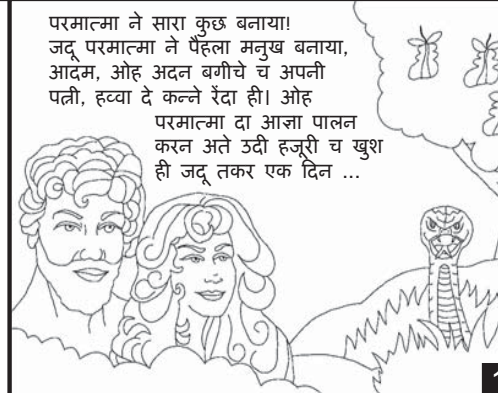 परमात्मा ने सारा कुछ बनाया!
जदू परमात्मा ने पैहला मनुख बनाया,
आदम, ओह अदन बगीचे च अपनी
पत्नी, हव्वा दे कन्ने रेंदा ही। ओह
परमात्मा दा आज्ञा पालन
करन अते उदी हजूरी च खुश
ही जदू तकर एक दिन ...
1